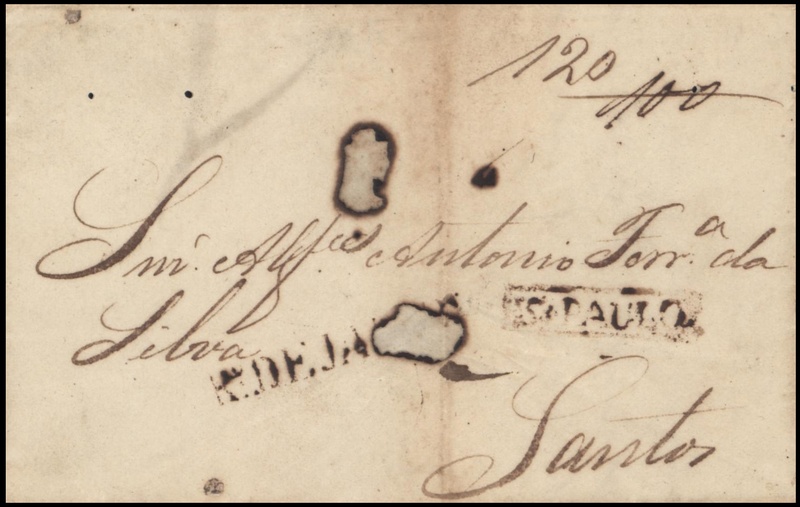 120
100
Snr. Alfes Antonio Ferra da
Silva
S. PAULO
R. DE JA
Santos